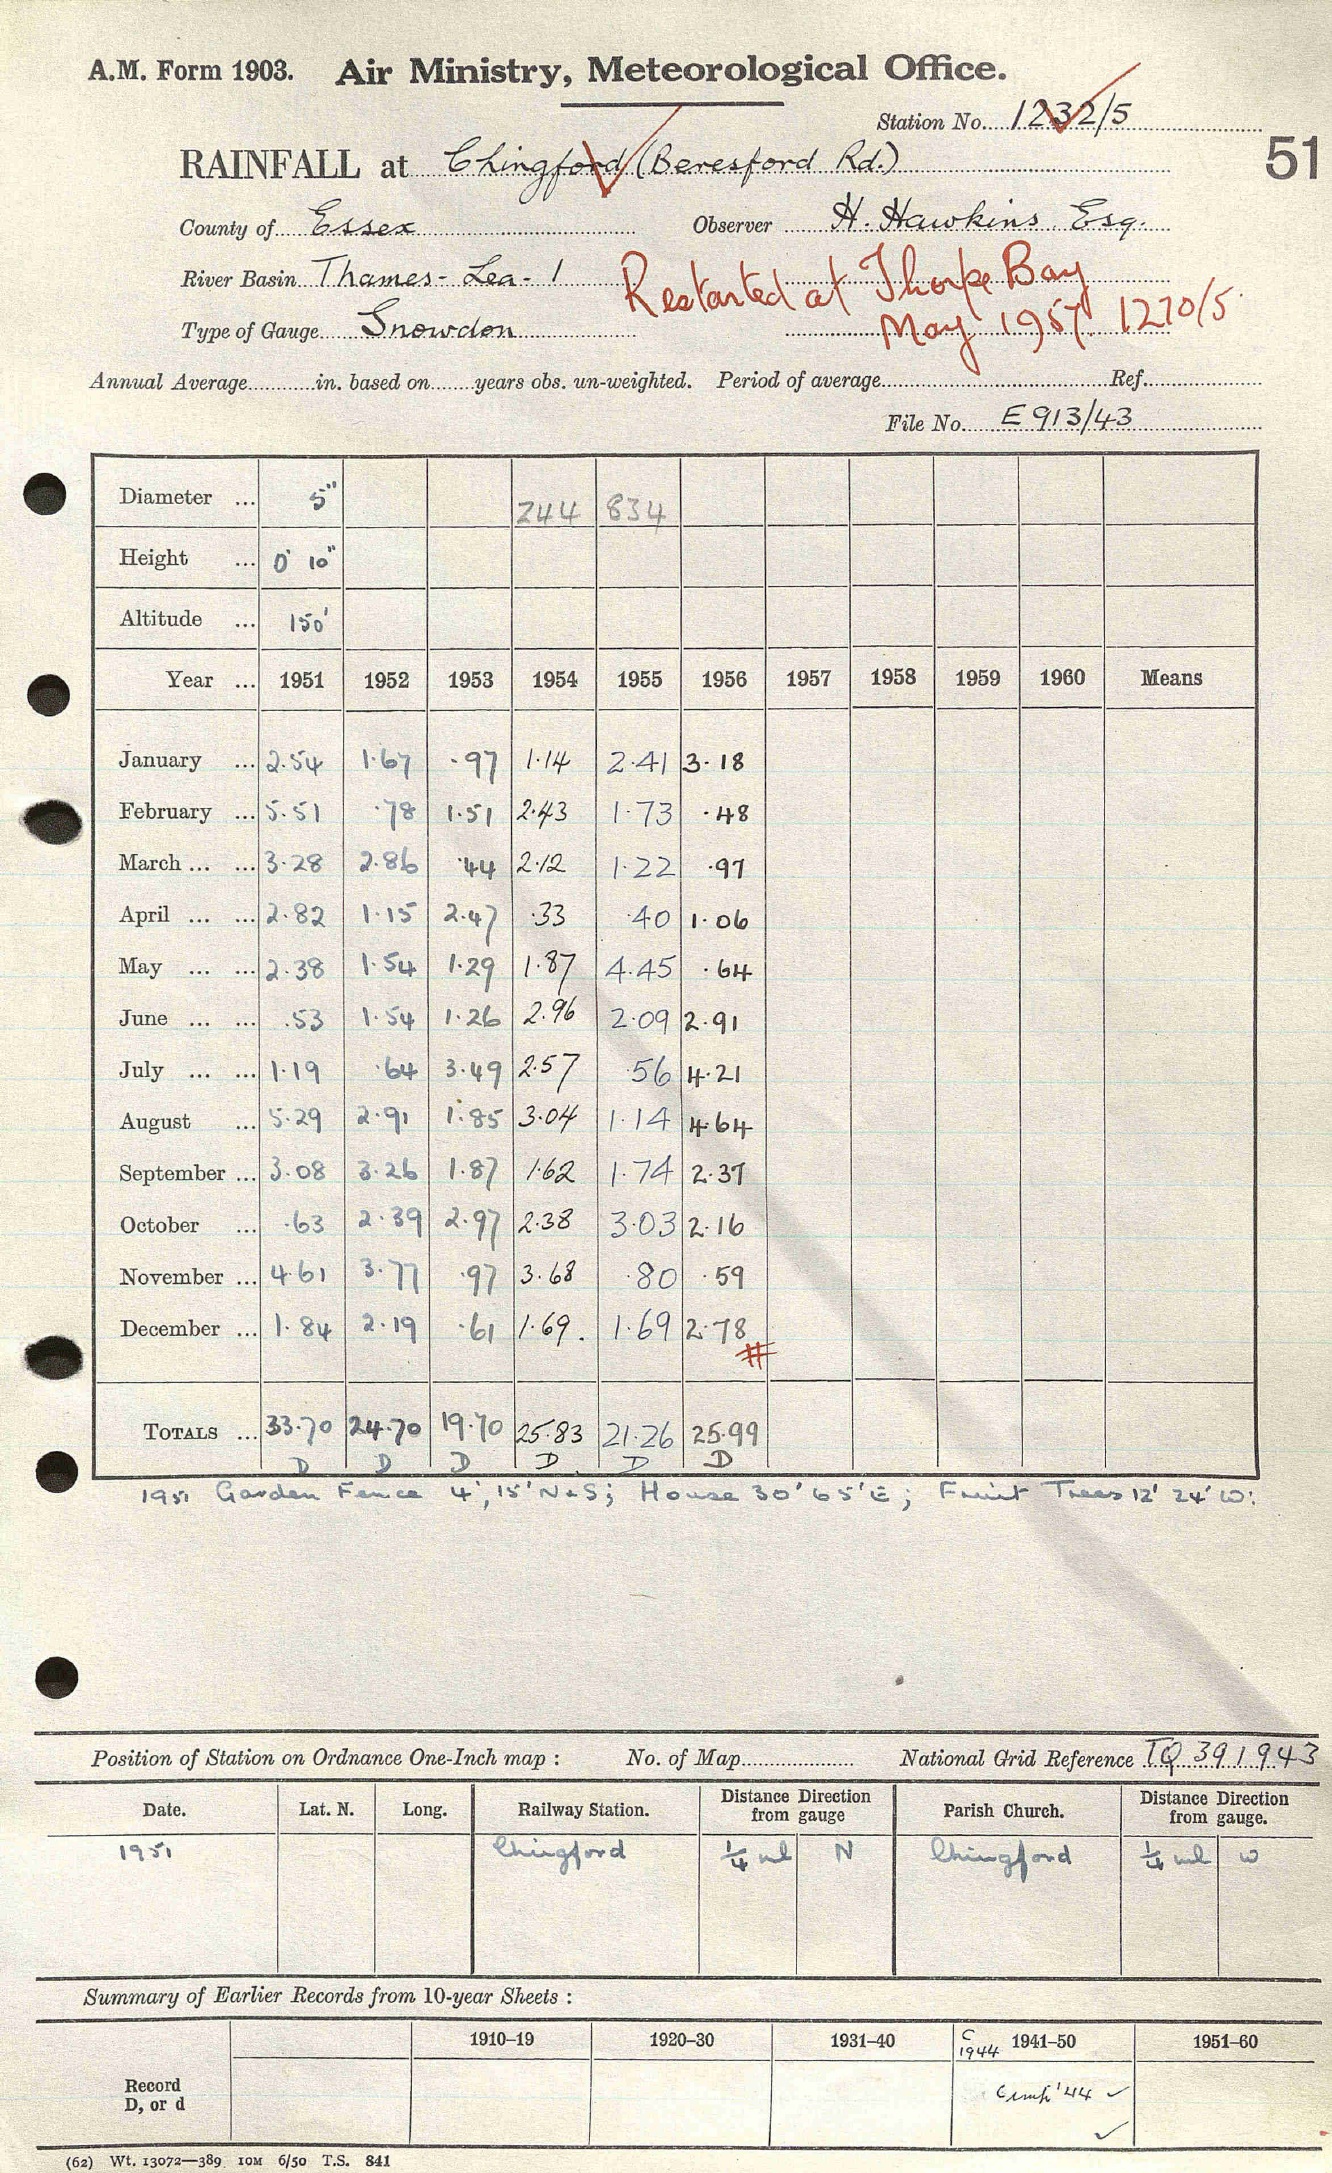 A.M. Form 1903. Air Ministry, Meteorological Office.
Station No. 1232/5
51
RAINFALL at Chingford (Beresford Rd.)
County of Essex Observer H. Hawkins Esq.
River Basin Thames - Lea - 1
Restarted at Thorpe Bay
May 1957 1270/5
Type of Gauge Snowdon
Annual Average in. based on years obs. un-weighted. Period of average Ref.
File No. E 913/43
Diameter ... 5" 244 834
Height ... 0' 10"
Altitude ... 150'
Year ... 1951 1952 1953 1954 1955 1956 1957 1958 1959 1960 Means
January ... 2.54 1.67 .97 1.14 2.41 3.18
February ... 5.51 .78 1.51 2.43 1.73 .48
March ... ... 3.28 2.86 .44 2.12 1.22 .97
April ... ... 2.82 1.15 2.47 .33 .40 1.06
May ... ... 2.38 1.54 1.29 1.87 4.45 .64
June ... ... .53 1.54 1.26 2.96 2.09 2.91
July ... ... 1.19 .64 3.49 2.57 .56 4.21
August ... 5.29 2.91 1.85 3.04 1.14 4.64
September ... 3.08 3.26 1.87 1.62 1.74 2.37
October ... .63 2.39 2.97 2.38 3.03 2.16
November ... 4.61 3.77 .97 3.68 .80 .59
December ... 1.84 2.19 .61 1.69. 1.69 2.78
#
TOTALS ... 33.70 24.70 19.70 25.83 21.26 25.99
D D D D D D
1951 Garden Fence 4', 15' N+S; House 30' 65' E; Fruit Trees 12' 24' W:
Position of Station on Ordnance One-Inch map : No. of Map National Grid Reference TQ 391943
Date. Lat. N. Long. Railway Station. Distance Direction from gauge Parish Church. Distance Direction from gauge.
1951 Chingford 1/4 ml N Chingford 1/4 ml W
Summary of Earlier Records from 10-year Sheets :
1910–19 1920–30 1931–40 C 1944 1941–50 1951–60
Record
D, or d
'44 ✓
✓
(62) Wt. 13072—389 10M 6/50 T.S. 841